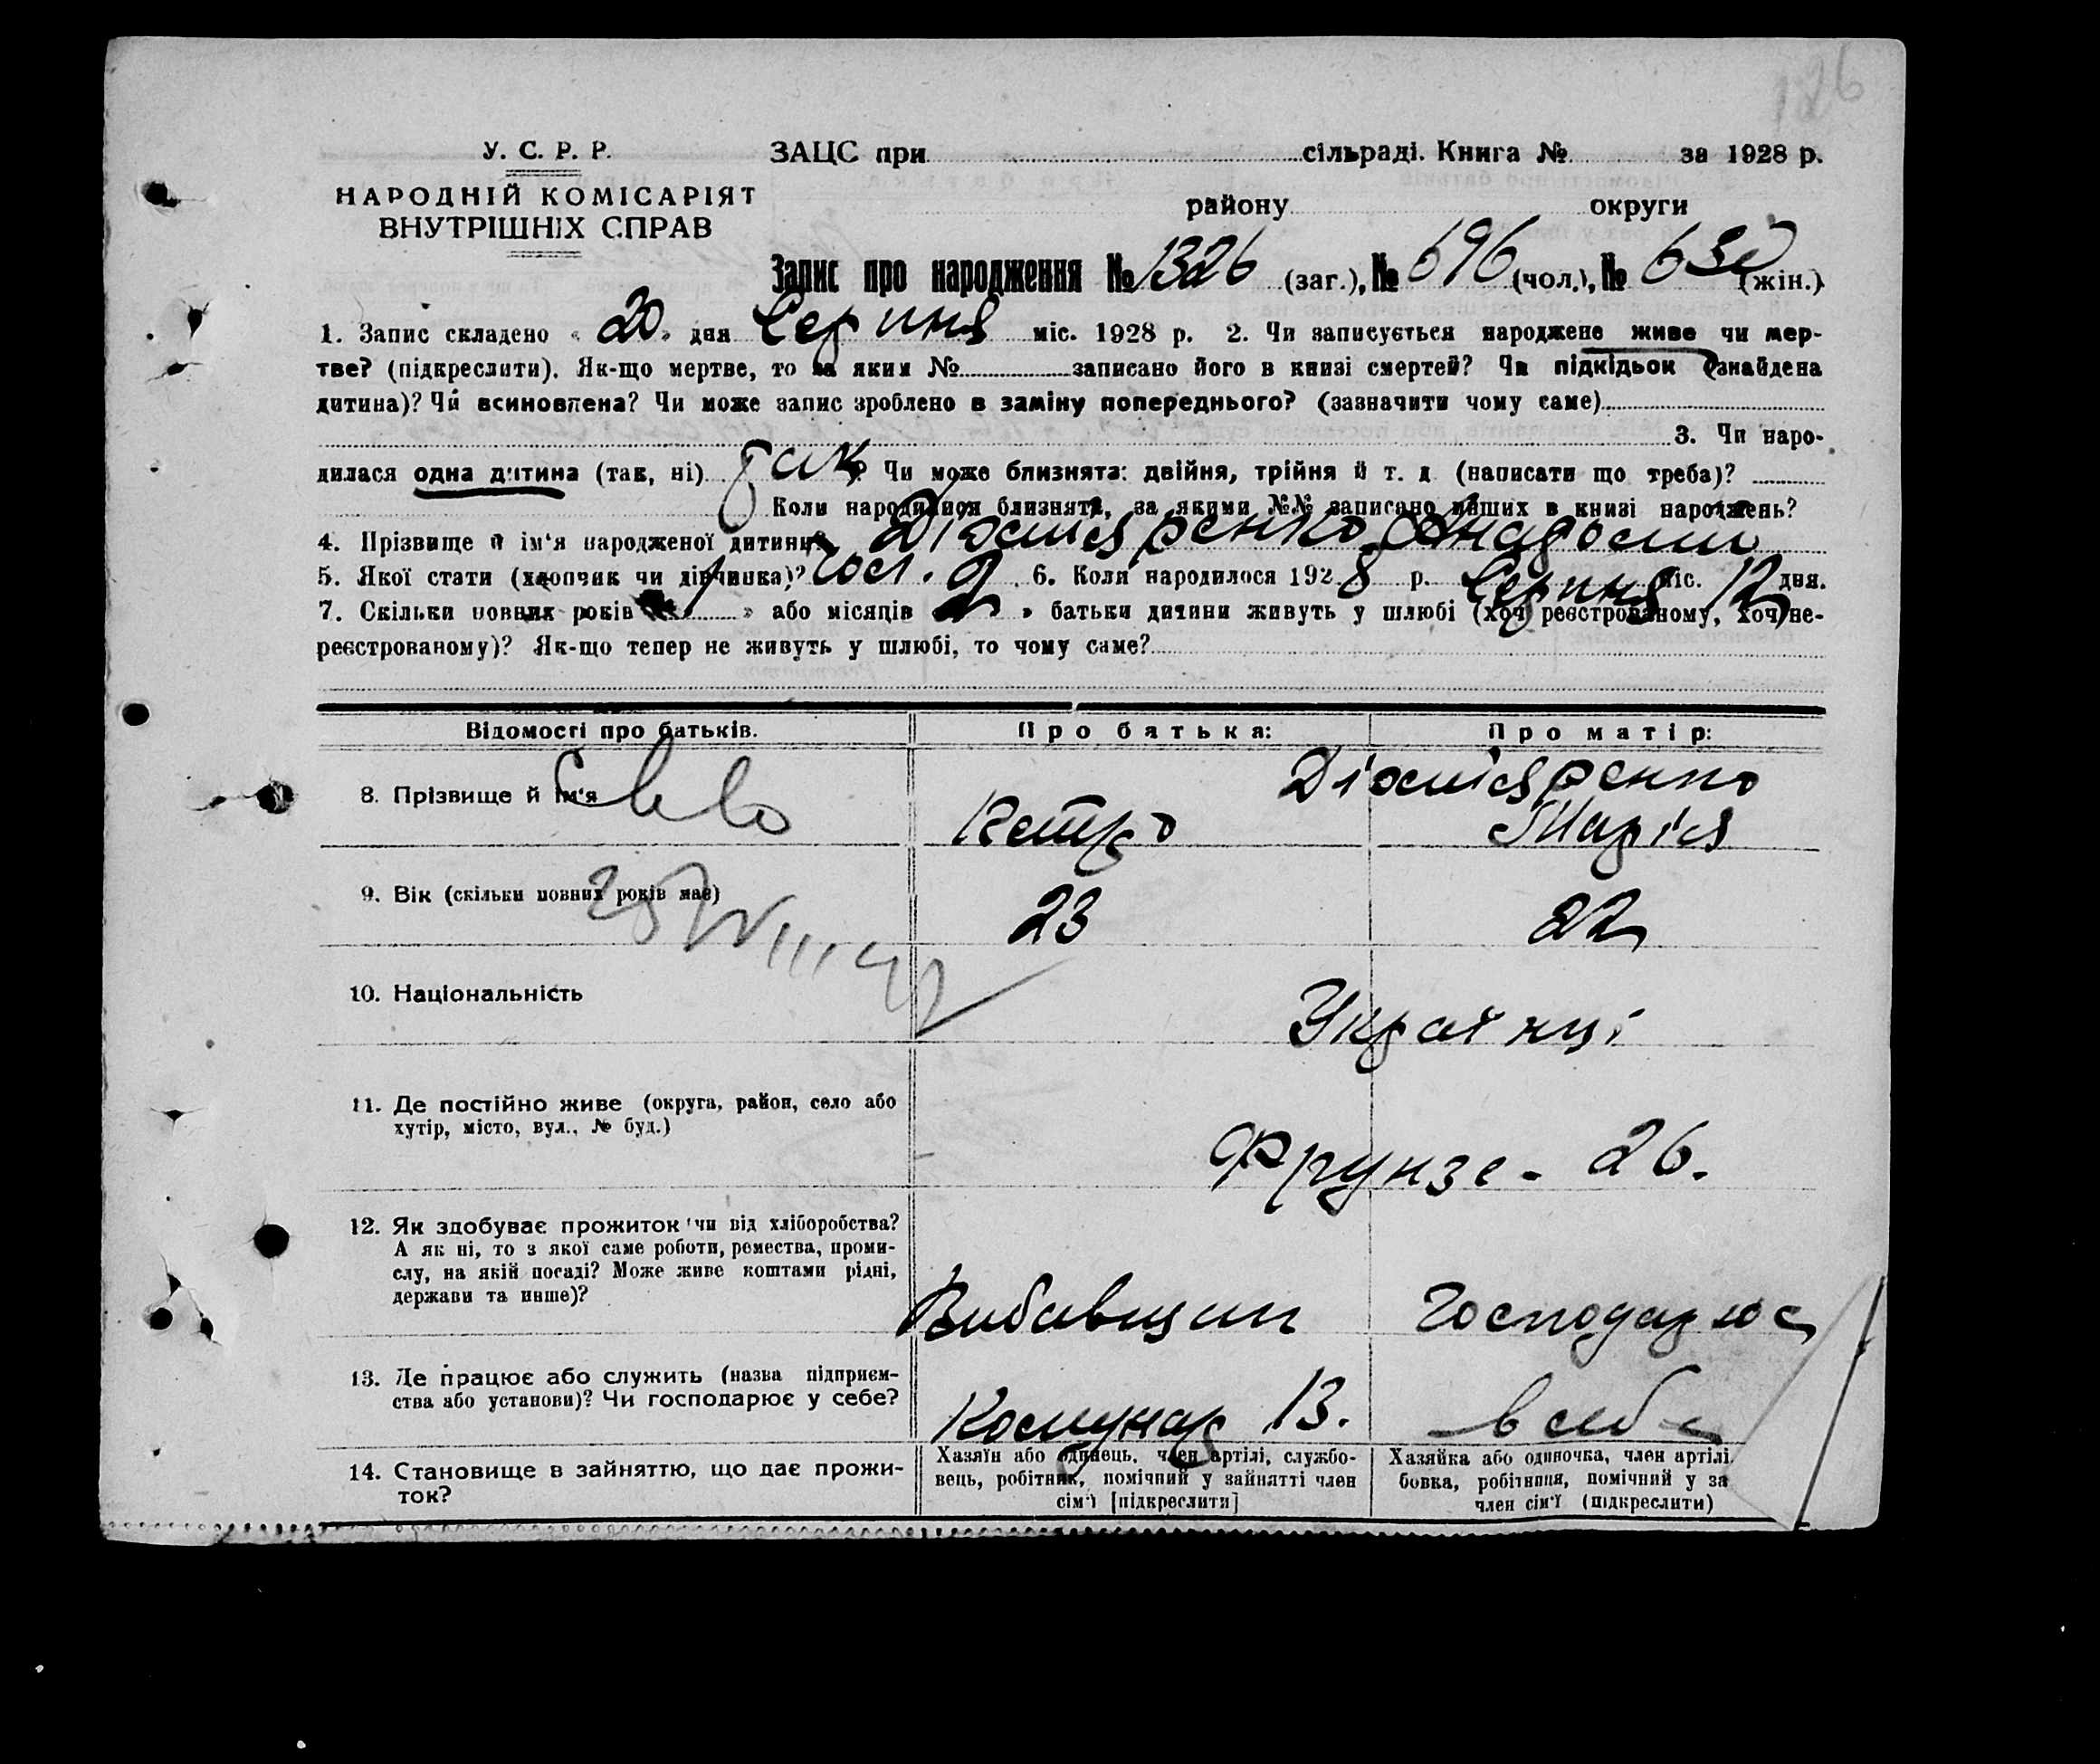 126
У. С. Р. Р.
НАРОДНІЙ КОМІСАРІЯТ
ВНУТРІШНІХ СПРАВ
ЗАЦС при сільраді. Книга № за 1928 р.
району округи
Запис про народження № 1326 (заг.), № 696 (чол.), № 630 (жін.)
1. Запис складено « 20 » дня Серпня міс. 1928 р. 2. Чи записується народжене живе чи мер-
тве? (підкреслити). Як-що мертве, то за яким № записано його в книзі смертей? Чи підкідьок (знайдена
дитина)? Чи всиновлена? Чи може запис зроблено в заміну попереднього? (зазначити чому саме)
3. Чи наро-
дилася одна дитина (так, ні) так Чи може близнята: двійня, трійня й т. д. (написати що треба)?
Коли народилися близнята, за якими №№ записано инших в книзі народжень?
4. Прізвище й ім'я народженої дитини
5. Якої стати (хлопчик чи дівчинка)? 6. Коли народилося 1928 р. Серпня міс. 12 дня.
7. Скільки повних років » або місяців » батьки дитини живуть у шлюбі (хоч реєстрованому, хоч не-
реєстрованому)? Як-що тепер не живуть у шлюбі, то чому саме?
Відомості про батьків. Про батька: Про матір:
8. Прізвище й ім'я Петро Марія
9. Вік (скільки повних років має) 23 22
10. Національність Українці
11. Де постійно живе (округа, район, село або
хутір, місто, вул., № буд.)
Фрунзе - 26.
12. Як здобуває прожиток чи від хліборобства?
А як ні, то з якої саме роботи, ремества, проми-
слу, на якій посаді? Може живе коштами рідні,
держави та инше)?
Вибавщик Господарює
13. Де працює або служить (назва підприєм-
ства або установи)? Чи господарює у себе?
Комунар 13. в себе
14. Становище в зайняттю, що дає прожи-
ток?
Хазяїн або одинець, член артілі, службо-
вець, робітник, помічний у зайнятті член
сім'ї [підкреслити]
Хазяйка або одиночка, член артілі,
бовка, робітниця, помічний у за
член сім'ї (підкреслити)